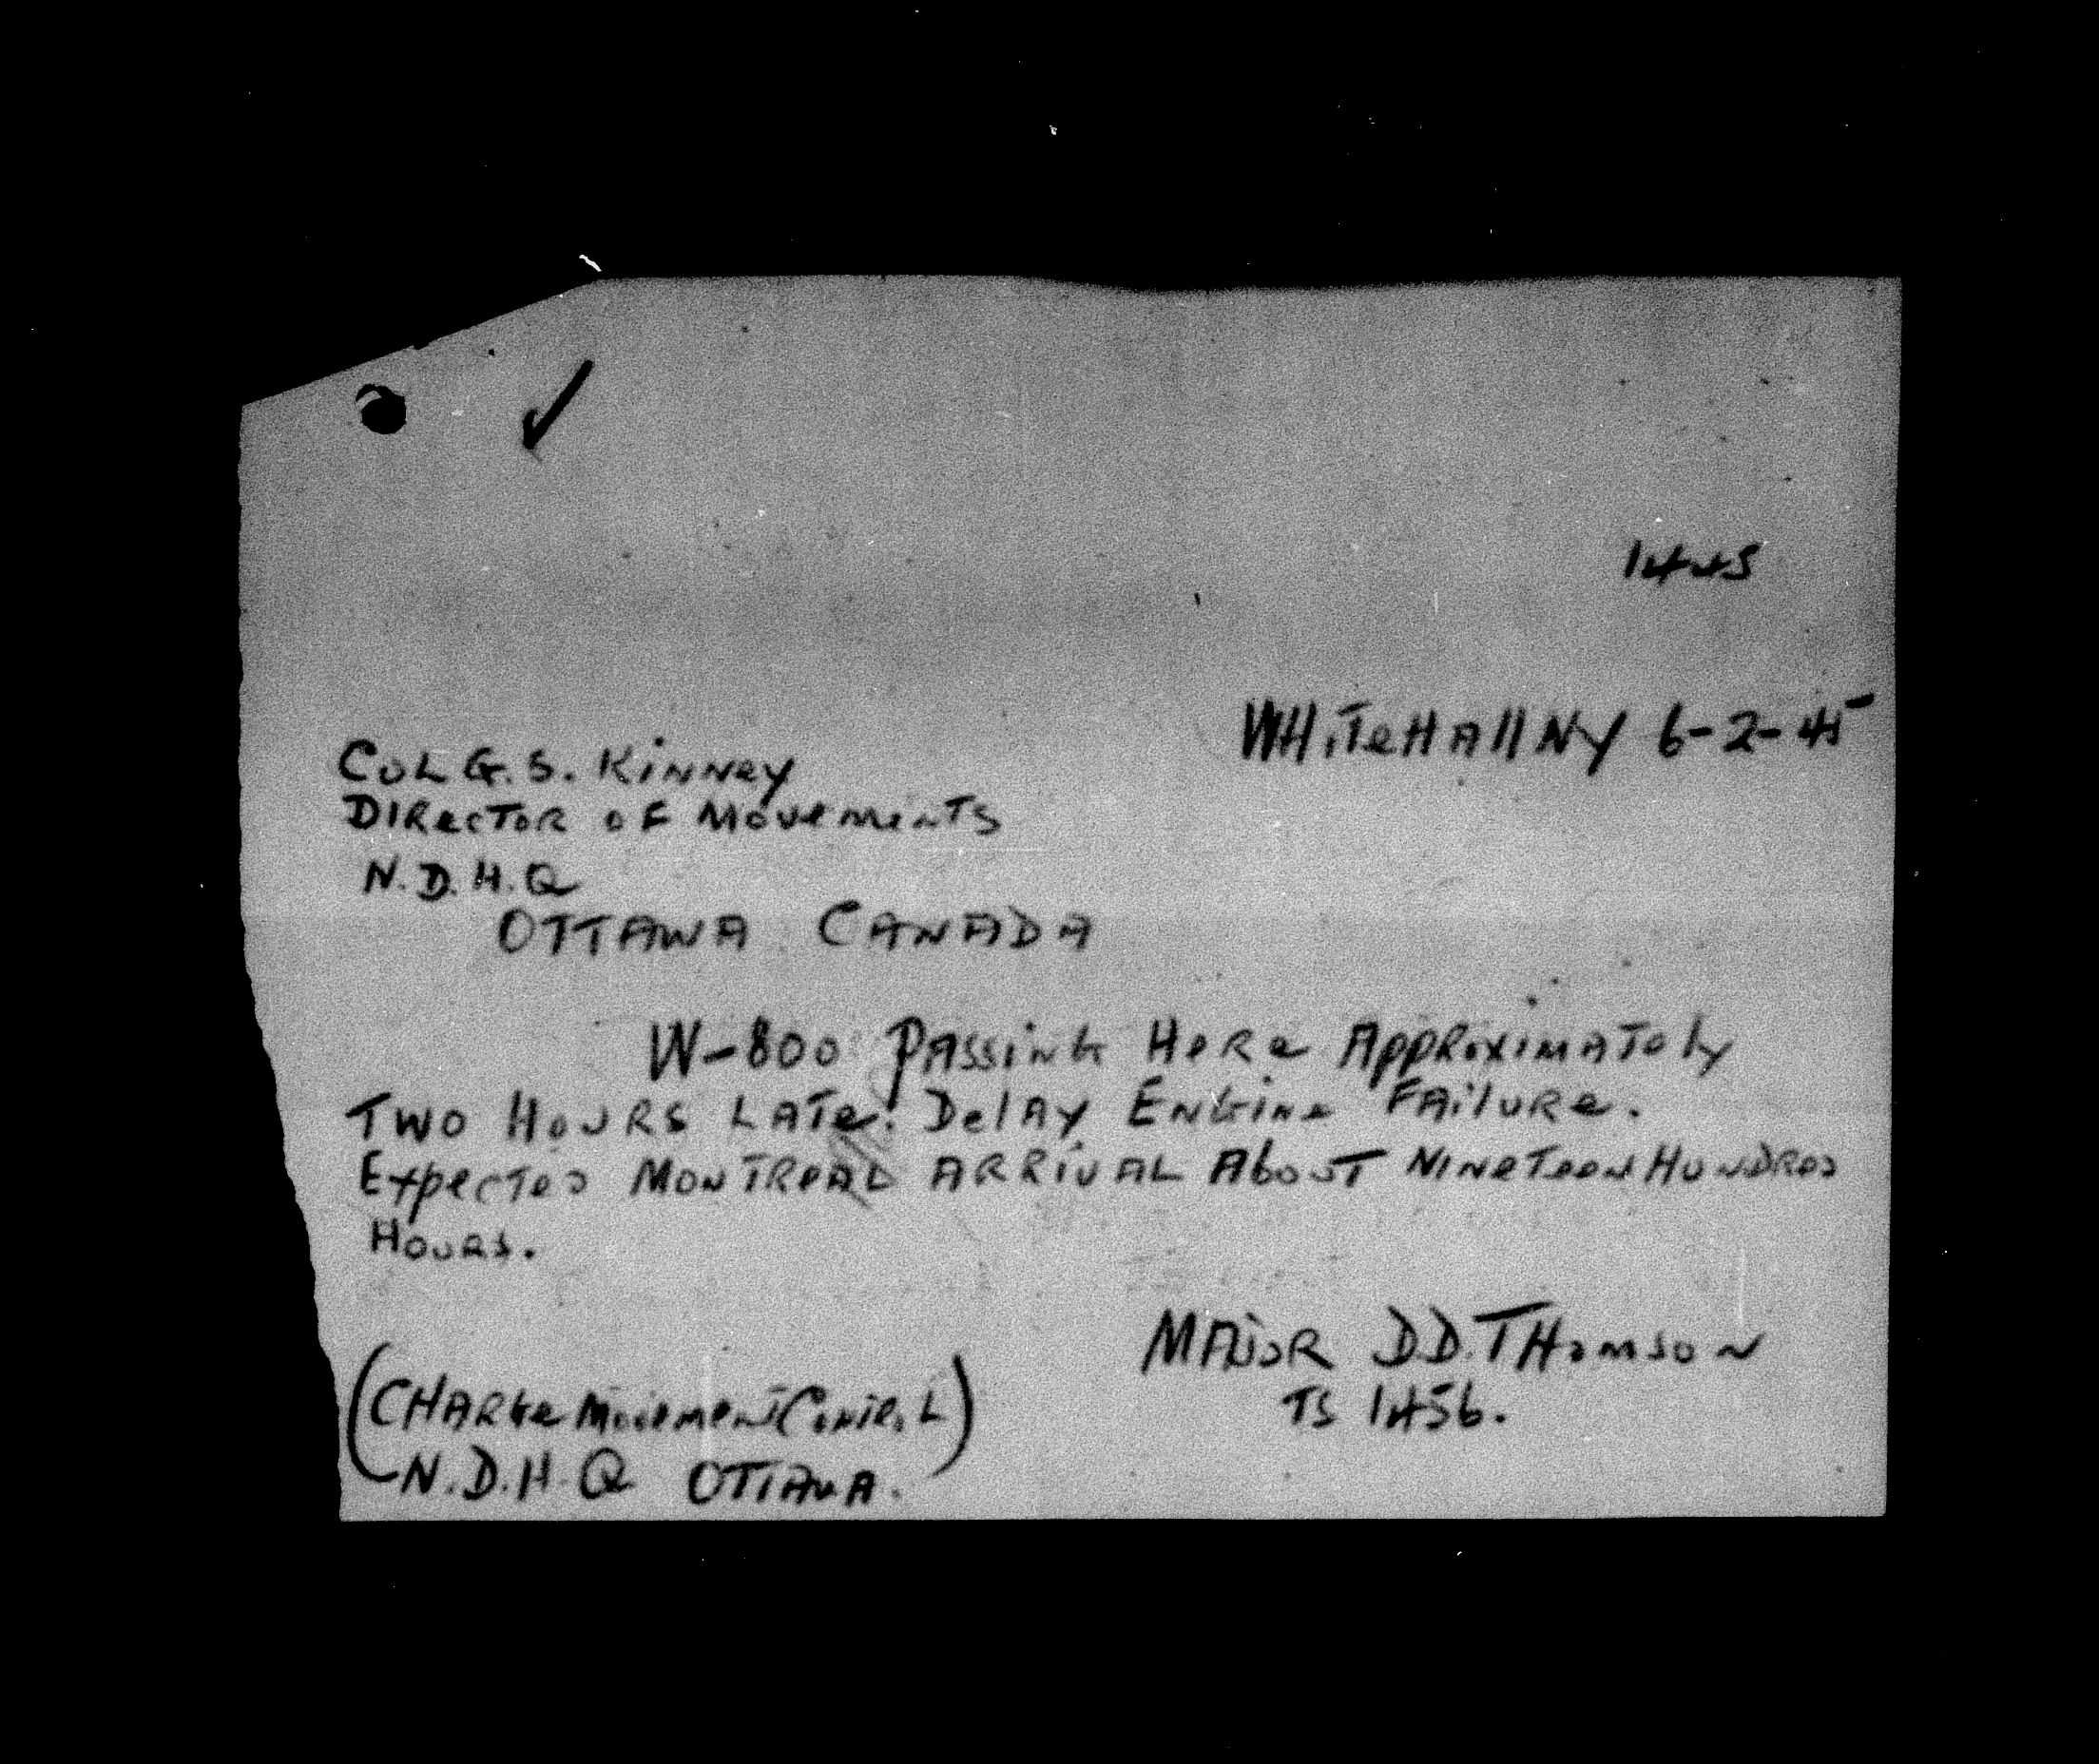 1445
WHITEHALL NY 6-2-45
COL G. S. KINNEY
DIRECTOR OF MOVEMENTS
N. D. H. Q
OTTAWA CANADA
W-800 PASSING HERE APPROXIMATELY
TWO HOURS LATE. DELAY ENGINE FAILURE.
EXPECTED MONTREAL ARRIVAL ABOUT NINETEEN HUNDRED
HOURS.
MAJOR D.D. THOMSON
TS 1456.
(CHARGE MOVEMENT CONTROL)
N. D. H. Q OTTAWA.